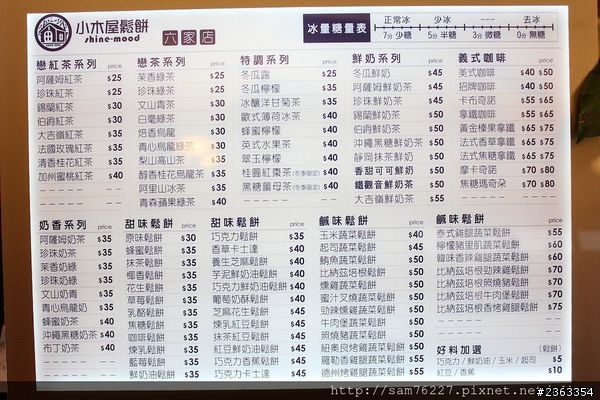 小木屋鬆餅
shine-mood
六家店
冰量糖量表
正常冰 少冰 --- 去冰
7分 少糖 5分 半糖 3分 微糖 0分 無糖
戀紅茶系列 price
阿薩姆紅茶 $25
珍珠紅茶 $25
錫蘭紅茶 $30
伯爵紅茶 $30
大吉嶺紅茶 $35
法國玫瑰紅茶 $35
清香桂花紅茶 $35
加州蜜桃紅茶 $40
戀茶系列 price
茉香綠茶 $25
珍珠綠茶 $25
文山青茶 $30
白毫綠茶 $30
焙香烏龍 $30
青心烏龍綠茶 $30
梨山高山茶 $35
醇香桂花烏龍 $35
阿里山冰茶 $35
青森蘋果綠茶 $40
特調系列 price
冬瓜露 $25
冬瓜檸檬 $35
冰釀洋甘菊茶 $35
歐式薄荷冰茶 $40
蜂蜜檸檬 $40
英式水果茶 $40
翠玉檸檬 $40
桂圓紅棗茶(冬季限定) $40
黑糖薑母茶(冬季限定) $40
鮮奶系列 price
冬瓜鮮奶 $45
阿薩姆鮮奶茶 $45
珍珠鮮奶茶 $45
錫蘭鮮奶茶 $50
伯爵鮮奶茶 $50
沖繩黑糖鮮奶茶 $50
靜岡抹茶鮮奶 $50
香甜可可鮮奶 $50
鐵觀音鮮奶茶 $50
大吉嶺鮮奶茶 $55
義式咖啡 price
美式咖啡 $40 $50
招牌咖啡 $40 $50
卡布奇諾 $55 $65
拿鐵咖啡 $55 $65
黃金榛果拿鐵 $65 $75
法式香草拿鐵 $65 $75
法式焦糖拿鐵 $65 $75
摩卡奇諾 $70 $80
焦糖瑪奇朵 $70 $80
奶香系列 price
阿薩姆奶茶 $35
珍珠奶茶 $35
茉香奶綠 $35
珍珠奶綠 $35
文山奶青 $35
青心烏龍奶 $35
蜂蜜奶茶 $40
沖繩黑糖奶茶 $40
布丁奶茶 $40
甜味鬆餅 price
原味鬆餅 $30
蜂蜜鬆餅 $35
抹茶鬆餅 $35
椰香鬆餅 $35
花生鬆餅 $35
草莓鬆餅 $35
乳酪鬆餅 $35
焦糖鬆餅 $35
咖啡鬆餅 $35
煉乳鬆餅 $35
藍莓鬆餅 $35
鮮奶油鬆餅 $35
甜味鬆餅 price
巧克力鬆餅 $35
香草卡士達 $40
養生芝麻鬆餅 $40
芋泥鮮奶油鬆餅 $40
巧克力鮮奶油鬆餅 $40
葡萄奶酥鬆餅 $40
芝麻花生鬆餅 $45
煉乳紅豆鬆餅 $45
抹茶紅豆鬆餅 $45
紅豆鮮奶油鬆餅 $45
巧克力香蕉鬆餅 $45
巧克力卡士達鬆餅 $45
鹹味鬆餅 price
玉米蔬菜鬆餅 $40
起司蔬菜鬆餅 $45
鮪魚蔬菜鬆餅 $50
比納茲培根鬆餅 $50
燻雞蔬菜鬆餅 $50
蜜汁叉燒蔬菜鬆餅 $50
勁辣燻雞蔬菜鬆餅 $50
牛肉堡蔬菜鬆餅 $50
照燒豬蔬菜鬆餅 $50
紐奧良烤雞蔬菜鬆餅 $50
羅勒香雞腿蔬菜鬆餅 $55
德州烤雞腿蔬菜鬆餅 $55
鹹味鬆餅 price
泰式雞腿蔬菜鬆餅 $55
檸檬豬里肌蔬菜鬆餅 $60
韓味香辣雞腿蔬菜鬆餅 $60
比納茲培根勁辣雞鬆餅 $70
比納茲培根燒豬鬆餅 $70
比納茲培根牛肉堡鬆餅 $70
比納茲培根香烤雞腿鬆餅 $75
好料加選 (鬆餅)
巧克力/鮮奶油/玉米/起司 $5
紅豆/香蕉 $10
http://sam76227.pixnet.net/blog
#2363354